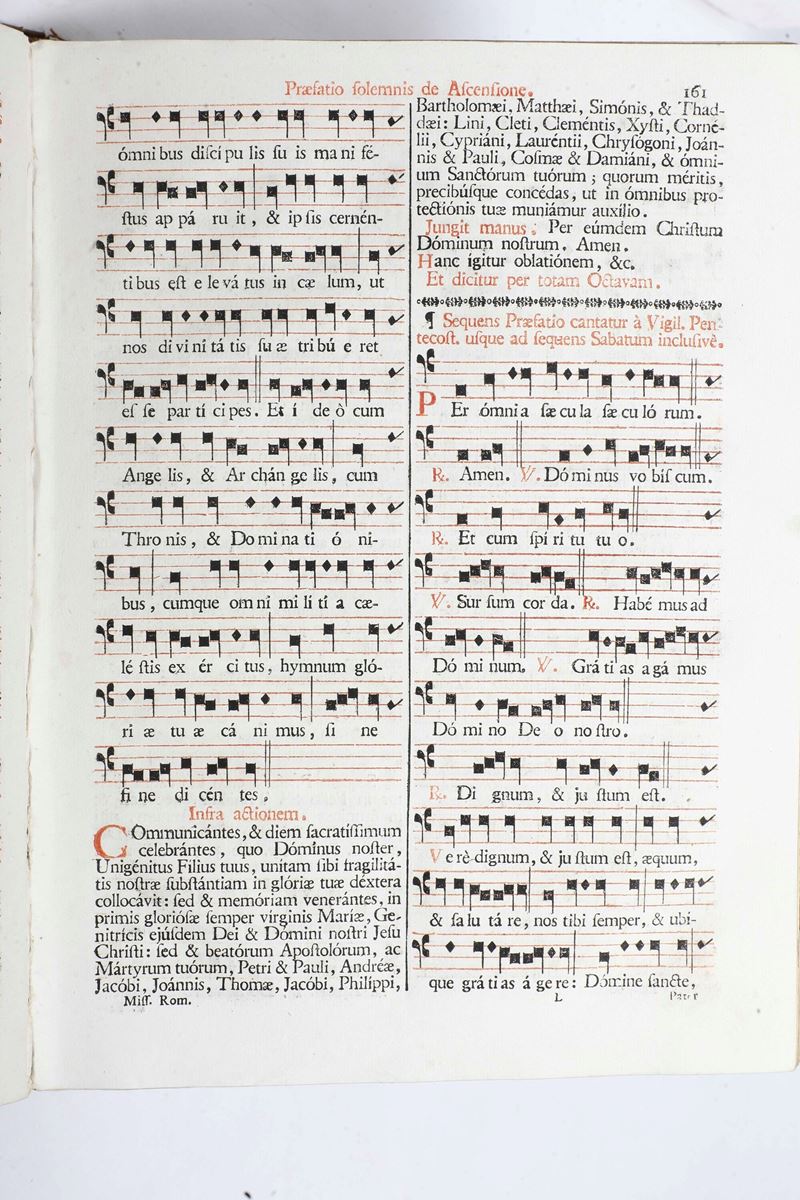 Præfatio ſolemnis de Aſcenſione.
161
ómni bus diſci pu lis ſu is ma ni fé-
ſtus ap pá ru it, & ip ſis cernén-
ti bus eſt e le vá tus in cæ lum, ut
nos di vi ni tá tis ſu æ tri bú e ret
eſ ſe par tí ci pes. Et í de ò cum
Ange lis, & Ar chán ge lis, cum
Thro nis, & Do mi na ti ó ni-
bus, cumque om ni mi li tí a cæ-
lé ſtis ex ér ci tus, hymnum gló-
ri æ tu æ cá ni mus, ſi ne
fi ne di cén tes.
Infra actionem.
COmmunicántes, & diem ſacratíſſimum
celebrántes, quo Dóminus noſter,
Unigénitus Filius tuus, unítam ſibi fragilitá-
tis noſtræ ſubſtántiam in glóriæ tuæ déxtera
collocávit: ſed & memóriam venerántes, in
primis glorióſæ ſemper vírginis Maríæ, Ge-
nitrícis ejúſdem Dei & Dómini noſtri Jeſu
Chriſti: ſed & beatórum Apoſtolórum, ac
Mártyrum tuórum, Petri & Pauli, Andréæ,
Jacóbi, Joánnis, Thomæ, Jacóbi, Philíppi,
Miſſ. Rom.
Bartholomæi, Matthæi, Simónis, & Thad-
dæi: Lini, Cleti, Cleméntis, Xyſti, Corné-
lii, Cypriáni, Lauréntii, Chryſógoni, Joán-
nis & Pauli, Coſmæ & Damiáni, & ómni-
um Sanctórum tuórum; quorum méritis,
precibúſque concédas, ut in ómnibus pro-
tectiónis tuæ muniámur auxílio.
Jungit manus. Per eúmdem Chriſtum
Dóminum noſtrum. Amen.
Hanc ígitur oblatiónem, &c.
Et dicitur per totam Octavam.
¶ Sequens Præfatio cantatur à Vigil. Pen-
tecoſt. uſque ad ſequens Sabatum incluſivè.
PEr ómni a ſæ cu la ſæ cu ló rum.
℟. Amen. ℣. Dó mi nus vo biſ cum.
℟. Et cum ſpí ri tu tu o.
℣. Sur ſum cor da. ℟. Habé mus ad
Dó mi num. ℣. Grá ti as a gá mus
Dó mi no De o no ſtro.
℟. Di gnum, & ju ſtum eſt.
Ve rè dignum, & ju ſtum eſt, æquum,
& ſa lu tá re, nos tibi ſemper, & ubi-
que grá ti as á ge re: Dómine ſancte,
L
Pater